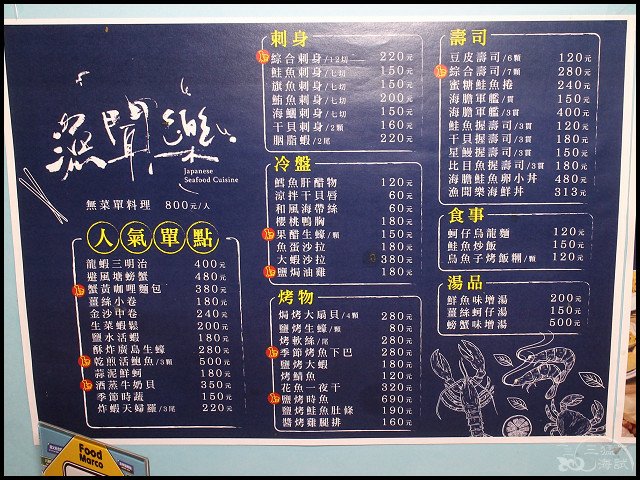 漁聞樂
Japanese
Seafood Cuisine
無菜單料理 800元/人
人氣單點
龍蝦三明治 400元
避風塘螃蟹 480元
蟹黃咖哩麵包 380元
薑絲小卷 180元
金沙中卷 240元
生菜蝦鬆 200元
鹽水活蝦 180元
酥炸廣島生蠔 280元
乾煎活鮑魚/3顆 500元
蒜泥鮮蚵 180元
酒蒸牛奶貝 350元
季節時蔬 150元
炸蝦天婦羅/3尾 220元
刺身
綜合刺身/12切 220元
鮭魚刺身/七切 150元
旗魚刺身/七切 150元
鮪魚刺身/七切 200元
海鱺刺身/七切 150元
干貝刺身/2顆 160元
胭脂蝦/2尾 220元
冷盤
鱈魚肝醋物 120元
涼拌干貝唇 60元
和風海帶絲 60元
櫻桃鴨胸 180元
果醋生蠔/顆 150元
魚蛋沙拉 180元
大蝦沙拉 380元
鹽焗油雞 180元
烤物
焗烤大扇貝/4顆 280元
鹽烤生蠔/顆 80元
烤軟絲/尾 280元
季節烤魚下巴 280元
鹽烤大蝦 180元
烤鯖魚 120元
花魚一夜干 320元
鹽烤時魚 690元
鹽烤鮭魚肚條 190元
醬烤雞腿排 160元
壽司
豆皮壽司/6顆 120元
綜合壽司/7顆 280元
蜜糖鮭魚捲 240元
海膽軍艦/貫 150元
海膽軍艦/貫 400元
鮭魚握壽司/3貫 120元
干貝握壽司/3貫 180元
星鰻握壽司/3貫 150元
比目魚握壽司/3貫 180元
海膽鮭魚卵小丼 480元
漁聞樂海鮮丼 313元
食事
蚵仔烏龍麵 120元
鮭魚炒飯 150元
烏魚子烤飯糰/顆 120元
湯品
鮮魚味增湯 200元
薑絲蚵仔湯 150元
螃蟹味增湯 500元
Food
Marco
三猛
海試